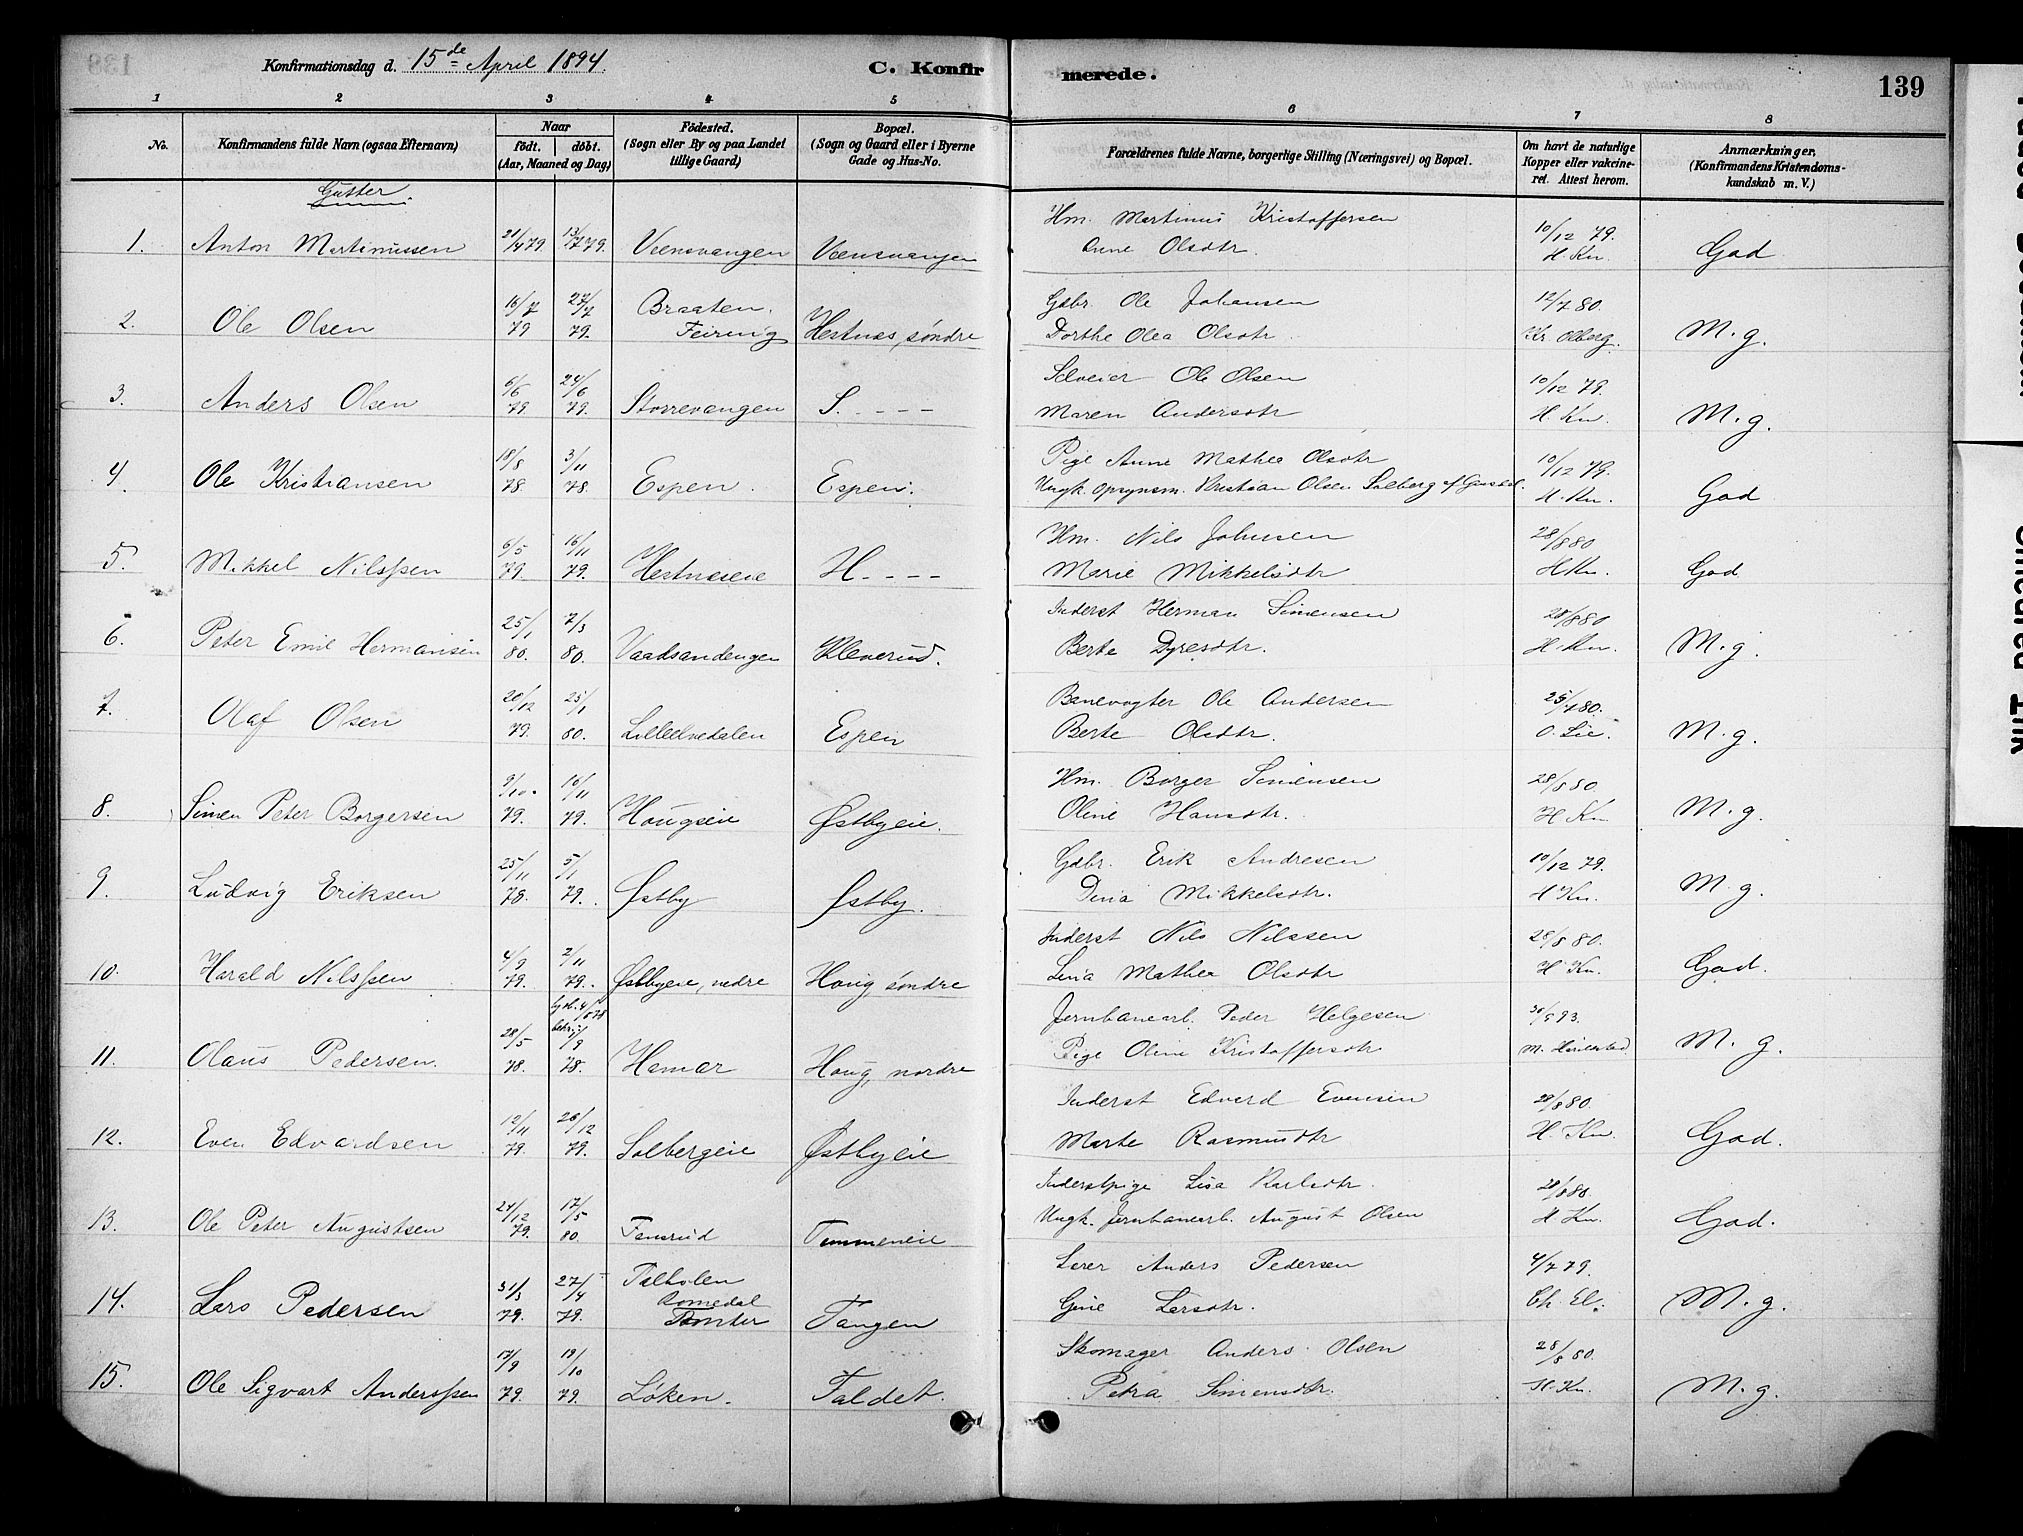 Konfirmationsdag d. 15de April 1894.
C. Konfirmerede.
139
1 2 3 4 5 6 7 8
No.
Konfirmandens fulde Navn (ogsaa Efternavn)
Naar
født. døbt.
(Aar, Maaned og Dag)
Fødested.
(Sogn eller By og paa Landet
tillige Gaard)
Bopæl.
(Sogn og Gaard eller i Byerne
Gade og Hus-No.
Forældrenes fulde Navne, borgerlige Stilling (Næringsvei) og Bopæl.
Om havt de naturlige
Kopper eller vakcine-
ret. Attest herom.
Anmærkninger,
(Konfirmandens Kristendoms-
kundskab m. V.)
Gutter
1. Anton Martinussen 21/4 79. 13/7 79. Veensvangen Veensvangen Hm. Martinus Kristoffersen 10/12 79.
Anne Olsdtr. H. Kn. God
2. Ole Olsen 16/7 79 27/7 79. Braaten, Feiring Hestnæs, søndre Gdbr. Ole Johansen 12/7 80.
Dorthe Olea Olsdtr. Kr. Olberg. M.g.
3. Anders Olsen 6/6 79 24/6 79. Storrevangen S. - - - - Selveier Ole Olsen 10/12 79.
Maren Andersdtr H. Kn. M.g.
4. Ole Kristiansen 18/8 78 3/11 78. Espen. Espen. Pige Anne Mathea Olsdtr 10/12 79.
Ungk. opsynsm. Kristian Olsen Solberg af H. Kn. God
5. Mikkel Nilssen 6/5 79. 16/11 79. Hestnæseie H - - - Hm. Nils Johnsen 28/8 80
Marie Mikkelsdtr H. Kn. God
6. Peter Emil Hermansen 25/1 80. 7/3 80. Vaadsandengen Kleverud. Inderst Herman Simensen 28/8 80
Berte Dyresdtr. H. Kn. M.g.
7. Olaf Olsen 20/12 79. 25/1 80. Lilleelvedalen Espen Banevogter Ole Andersen 80.
Berte Olsdtr. O. Lie. M.g.
8. Simen Peter Borgersen 9/10. 79. 16/11 79. Hougseie Østbyeie. Hm. Borger Simensen 28/8 80.
Oline Hansdtr. H Kn M.g.
9. Ludvig Eriksen 25/11 78. 5/1 79. Østby Østby. Gdbr. Erik Andresen 10/12 79.
Dina Mikkelsdtr. H Kn. M.g.
10. Harald Nilssen 4/9 79. 2/11 79. Østbyeie, nedre Houg søndre Inderst Nils Nilssen 28/8 80.
Lina Mathea Olsdtr H Kn. God.
11. Olaus Pedersen. 28/5 78. 1/9 78. Hamar Houg, nordre Jernbanearb. Peder Helgesen 93.
Pige Oline Kristoffersdtr M. M.g.
12. Even Edvardsen 12/11 79. 26/12 79. Solbergeie Østbyeie Inderst Edvard Evensen 28/8 80.
Marte Rasmusdtr H. Kn. God.
13. Ole Peter Augustsen 24/12 79. 17/5 80. Fansrud Tommeneie Inderstpige Lisa Karlsdtr. 28/8 80.
Ungk. Jernbanearb. August Olsen H Kn. God.
14. Lars Pedersen 31/3 79. 27/4 79. Romedal Tomter Tangen Lærer Anders Pedersen 4/7 79.
Gine Larsdtr. Ch. El. M.g.
15. Ole Sigvart Anderssen 17/9 79. 19/10 79. Løken. Faldet. Skomager Anders Olsen 28/8 80.
Petra Simensdtr. H. Kn. M.g.